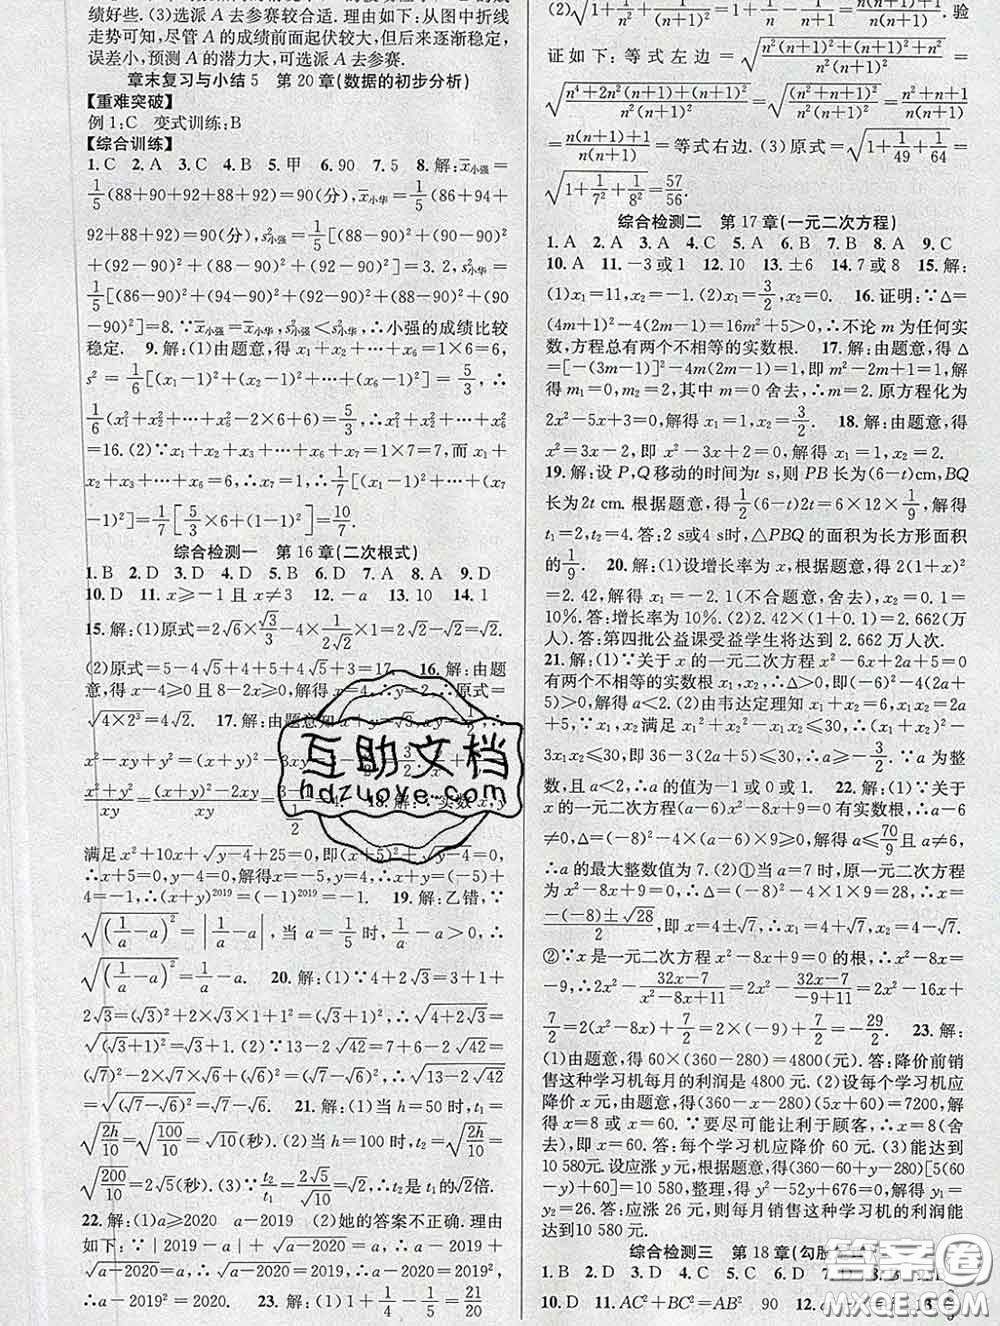 此. (3)选派 A 去参赛较合适. 理由如下:从图中折线
走势可知, 尽管 A 的成绩前面起伏大, 但后来逐渐稳定,
误差小, 预测 A 的潜力大, 可选派 A 去参赛.
章末复习与小结 5 第 20 章(数据的初步分析)
【重难突破】
例 1:C 变式训练:B
【综合训练】
1. C 2. A 3. C 4. B 5. 甲 6. 90 7. 5 8. 解: x̄小强=
1/5(88+90+92+88+92)=90(分), x̄小华=1/5(86+94+
92+88+92)=90(分), s²小强=1/5[(88-90)²+(90-90)²
+(92-90)²+(88-90)²+(92-90)²]=3. 2, s²小华=
1/5[(86-90)²+(94-90)²+
-90)²]=8. ∵x̄小强=x̄小华, s²小强<s²小华, ∴小强的成绩比较
稳定. 9. 解:(1)由题意, 得 x₁+x₂+⋯+x₆=1×6=6,
s²=1/6[(x₁-1)²+(x₂-1)²+⋯+(x₆-1)²]=5/3, ∴
1/6(x₁²+x₂²+⋯+x₆²-2×6+6)=5/3, ∴x₁²+x₂²+⋯+
x₆²=16. (2)∵x₁+x₂+x₃+⋯+x₇=1×7=7, 而 x₁+
x₂+x₃+⋯+x₆=6, ∴x₇=1, ∴1/7[(x₁-1)²+⋯+(x₇
-1)²]=1/7[5/3×6+(1-1)²]=10/7.
综合检测一 第 16 章(二次根式)
1. B 2. D 3. D 4. D 5. B 6. D 7. A 8. A 9. D
10. D 11. x≥-1 且 x≠3 12. -a 13. 10 14. 1
15. 解:(1)原式=2√6×√3/3-4×1/(2√2)×1=2√2-√2=√2.
(2)原式=5-4√5+4+5+4√5+3=17. 16. 解:由题
意, 得 x-4≥0 且 8-2x≥0, 解得 x=4, ∴y=2, ∴原式=
√(4×2³)=4√2. 17. 解:由题意知 x+y=√3, xy=1/2
满足 x²+10x+√(y-4)+25=0, 即(x+5)²+√(y-4)=0,
∴x+5=0, y-4=0, 解得 x=-5, y=4, ∴x+y=(-5)+
4=-1, ∴(x+y)²⁰¹⁹=(-1)²⁰¹⁹=-1. 19. 解:乙错, ∵
√((1/a-a)²)=|1/a-a|, 当 a=1/5 时, 1/a-a>0, ∴
√((1/a-a)²)=1/a-a. 20. 解:(1)∵4+2√3=3+1+
2√3=(√3)²+2√3+1²=(√3+1)², ∴√(4+2√3)=
√((√3+1)²)=√3+1. (2)∵13-2√42=7+6-2√42=
(√7)²-2√7×√6+(√6)²=(√7-√6)², ∴√(13-2√42)
=√((√7-√6)²)=√7-√6. 21. 解:(1)当 h=50 时, t₁=
√(2h/10)=√(100/10)=√10(秒). (2)当 h=100 时, t₂=√(2h/10)=
√(200/10)=2√5(秒). (3)∵t₂/t₁=2√5/√10=√2, ∴t₂是 t₁的√2倍.
22. 解:(1)a≥2020 a-2019 (2)她的答案不正确. 理由
如下:∵|2019-a|+√(a-2020)=a, ∴a-2019+
√(a-2020)=a, ∴√(a-2020)=2019, ∴a-2020=2019²,
∴a-2019²=2020. 23. 解:(1)√(1+1/4²+1/5²)=1+1/20=21/20
(2)√(1+1/n²+1/(n+1)²)=
验
证如下: 等式左边=
√((n⁴+2n²(n+1)+(n+1)²)/(n²(n+1)²))=
(n(n+1)+1)/(n(n+1))=等式右边. (3)原式=√(1+1/49+1/64)
=√(1+1/7²+1/8²)=57/56.
综合检测二 第 17 章(一元二次方程)
1. A 2. A 3. A 4. C 5. C 6. B 7. B 8. A 9. C
10. A 11. -3 或 1 12. 10 13. ±6 14. 7 或 8 15. 解:
(1)x₁=11, x₂=-1. (2)x₁=3/2, x₂=0. 16. 证明:∵Δ=
(4m+1)²-4(2m-1)=16m²+5>0, ∴不论 m 为任何实
数, 方程总有两个不相等的实数根. 17. 解:由题意, 得 Δ
=[-(3m-1)]²-4m(2m-1)=1, 即 m²-2m=0, 解
得 m₁=0, m₂=2, 其中 m=0 舍去, ∴m=2. 原方程化为
2x²-5x+3=0, 解得 x₁=1, x₂=3/2. 18. 解:由题意, 得
x²-3x+3=1, 即 x²-3x+2=0, 解得 x₁=1, x₂=2.
19. 解:设 P, Q 移动的时间为 t s, 则 PB 长为(6-t)cm, BQ
长为 2t cm. 根据题意, 得 1/2(6-t)2t=6×12×1/9, 解得
t₁=2, t₂=4. 答:2 s或4 s时, △PBQ 的面积为长方形面积
的1/9. 20. 解:(1)设增长率为 x, 根据题意, 得 2(1+x)²
=2. 42, 解得 x₁=-2. 1(不合题意, 舍去), x₂=0. 1=
10%. 答:增长率为 10%. (2)2. 42(1+0. 1)=2. 662(万
人). 答:第四批公益课受益学生将达到 2. 662 万人次.
21. 解:(1)∵关于 x 的一元二次方程 x²-6x+2a+5=0
有两个不相等的实数根 x₁, x₂, ∴Δ>0, 即(-6)²-4(2a+5)>0,
解得 a<2. (2)由韦达定理知 x₁+x₂=6, x₁x₂=2a
+5, ∵x₁, x₂ 满足 x₁²+x₂²-x₁x₂≤30, ∴(x₁+x₂)²-
3x₁x₂≤30, 即 36-3(2a+5)≤30, ∴a≥-3/2. ∵a 为整
数, 且 a<2, ∴a 的值为-1 或 0 或 1. 22. 解:(1)∵关于
x 的一元二次方程(a-6)x²-8x+9=0 有实数根, ∴a-6
≠0, Δ=(-8)²-4×(a-6)×9≥0, 解得 a≤70/9 且 a≠6,
∴a 的最大整数值为 7. (2)①当 a=7 时, 原一元二次方程
为 x²-8x+9=0, ∴Δ=(-8)²-4×1×9=28, ∴x=
(-(-8)±√28)/2, 即 x=4±√7, ∴x₁=4+√7, x₂=4-√7.
②∵x 是一元二次方程 x²-8x+9=0 的根, ∴x²-8x=
-9, ∴2x²-(32x-7)/(x²-8x+11)=2x²-(32x-7)/(-9+11)=2x²-16x+
7/2=2(x²-8x)+7/2=2×(-9)+7/2=-29/2. 23. 解:
(1)由题意, 得 60×(360-280)=4800(元). 答:降价前销
售这种学习机每月的利润是 4800 元. (2)设每个学习机应
降价 x 元, 由题意, 得(360-x-280)(5x+60)=7200, 解
得 x=8 或 x=60. ∵要尽可能让利于顾客, ∴x=8(舍
去), 即 x=60. 答:每个学习机应降价 60 元. (3)能达到
10 580元. 设应涨 y 元, 根据题意, 得(360-60+y-280)[5(60
-y)+60]=10 580, 整理, 得 y²-52y+676=0, 解得 y₁=
y₂=26. 答:应涨 26 元, 则每月销售这种学习机的利润能
达到 10 580 元.
综合检测三 第 18 章(勾股
1. B 2. C 3. D 4. C 5. D 6. B
10. D 11. AC²+BC²=AB² 90 12.
互助文档
hdzuoye.com
答案圈